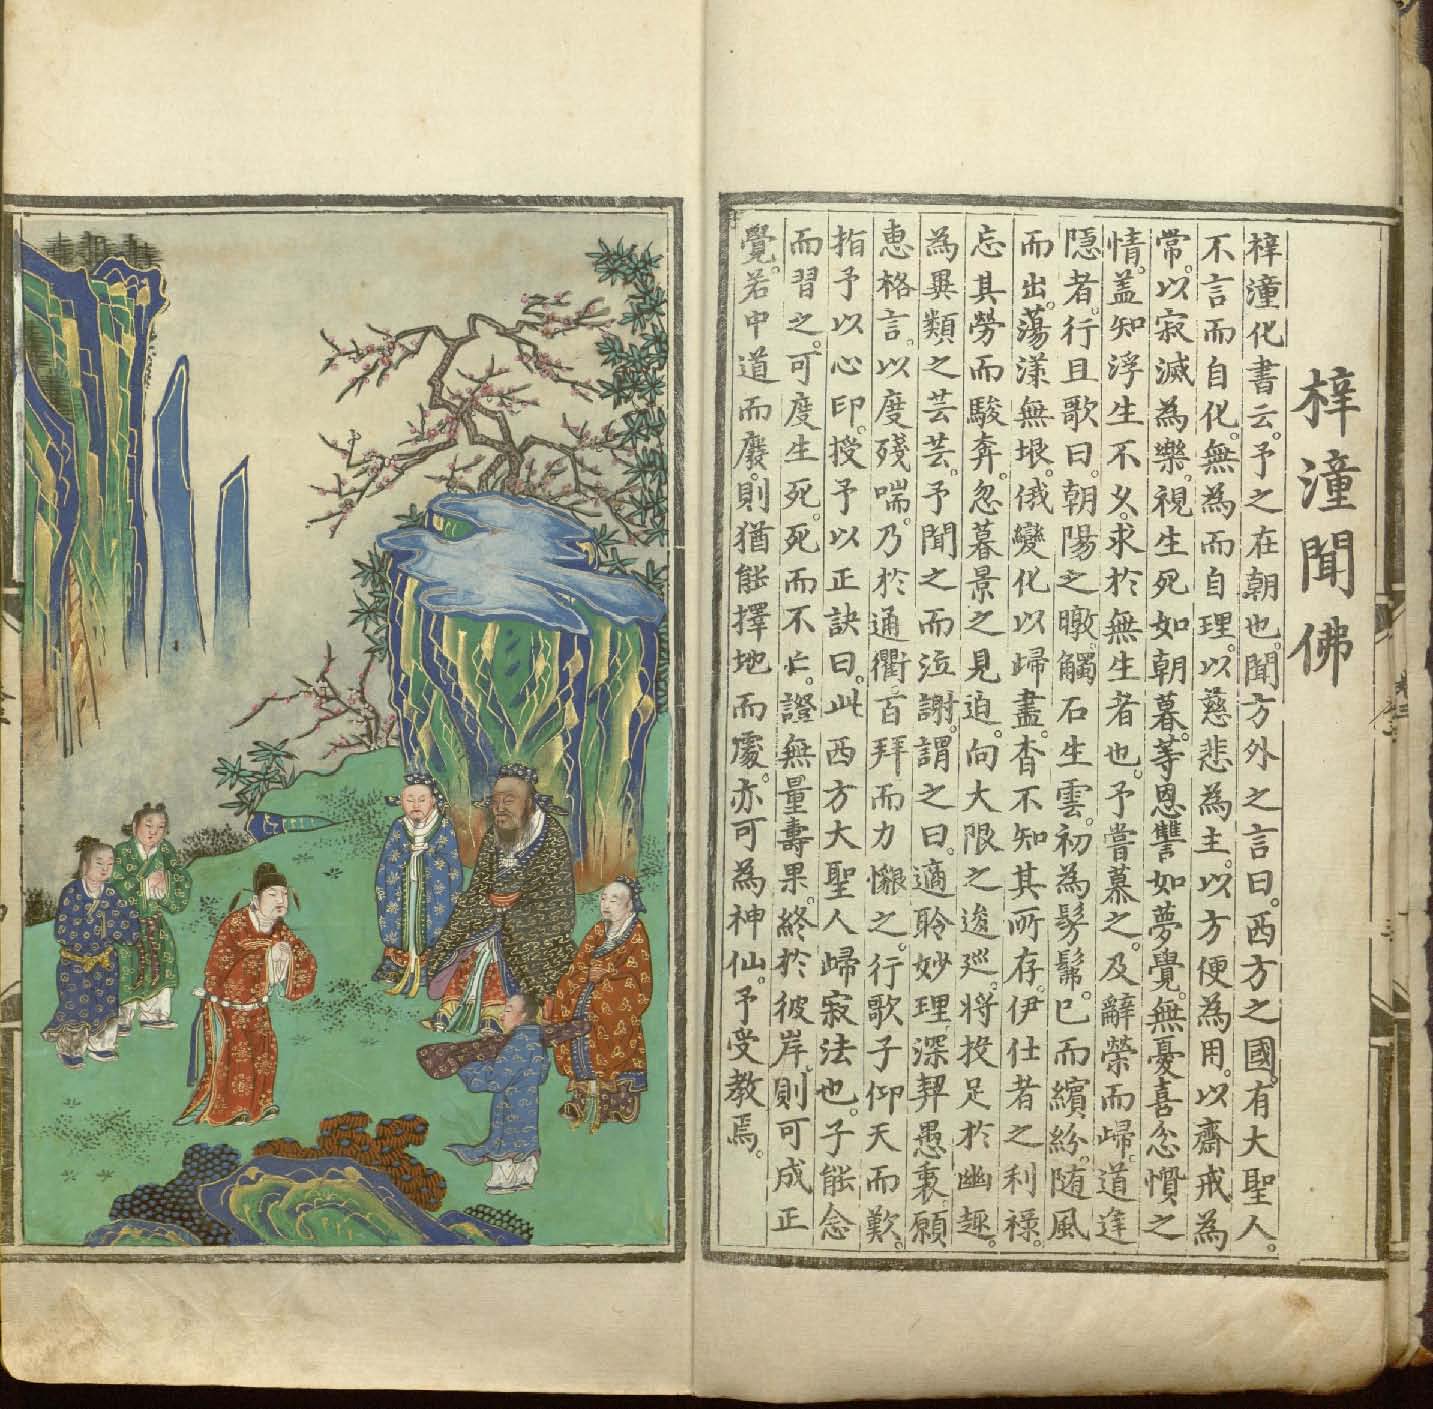 梓潼聞佛
梓潼化書云。予之在朝也。聞方外之言曰。西方之國。有大聖人。
不言而自化。無為而自理。以慈悲為主。以方便為用。以齋戒為
常。以寂滅為樂。視生死如朝暮。等恩讐如夢覺。無憂喜忿懫之
情。蓋知浮生不久。求於無生者也。予嘗慕之。及辭榮而歸。道逢
隱者。行且歌曰。朝陽之暾。觸石生雲。初為髣髴。已而繽紛。随風
而出。蕩漾無垠。俄變化以歸盡。杳不知其所存。伊仕者之利祿。
忘其勞而駿奔。忽暮景之見迫。向大限之逡巡。将投足於幽趣。
為異類之芸芸。予聞之而泣謝。謂之曰。適聆妙理。深契愚衷。願
惠格言。以度殘喘。乃於通衢。百拜而力懇之。行歌子仰天而歎。
指予以心印。授予以正訣曰。此西方大聖人歸寂法也。子能念
而習之。可度生死。死而不亡。證無量壽果。終於彼岸。則可成正
覺。若中道而廢。則猶能擇地而處。亦可為神仙。予受教焉。